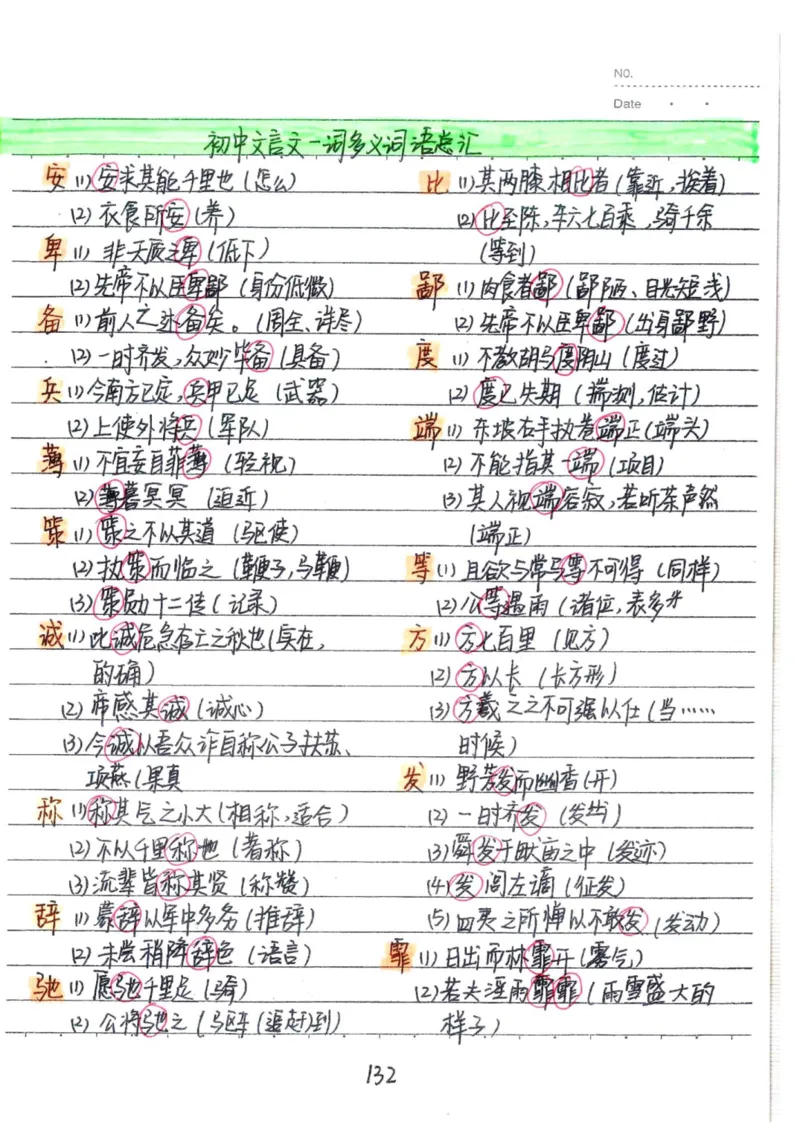 NO.
Date
初中文言文一词多义词语总汇
安 (1) 安求其能千里也 (怎么)
(2) 衣食所安 (养)
卑 (1) 非天质之卑 (低下)
(2) 先帝不以臣卑鄙 (身份低微)
备 (1) 前人之述备矣。 (周全、详尽)
(2) 一时齐发,众妙毕备 (具备)
兵 (1) 今南方已定,兵甲已足 (武器)
(2) 上使外将兵 (军队)
薄 (1) 不宜妄自菲薄 (轻视)
(2) 薄暮冥冥 (迫近)
策 (1) 策之不以其道 (驱使)
(2) 执策而临之 (鞭子,马鞭)
(3) 策勋十二传 (记录)
诚 (1) 此诚危急存亡之秋也 (实在,
的确)
(2) 帝感其诚 (诚心)
(3) 今诚以吾众诈自称公子扶苏、
项燕 (果真
称 (1) 称其气之小大 (相称,适合)
(2) 不以千里称也 (著称)
(3) 流辈皆称其贤 (称赞)
辞 (1) 蒙辞以军中多务 (推辞)
(2) 未尝稍降辞色 (语言)
驰 (1) 愿驰千里足 (骑)
(2) 公将驰之 (驱车 (追赶)到)
比 (1) 其两膝相比者 (靠近,挨着)
(2) 比至陈,车六七百乘,骑千余
(等到)
鄙 (1) 肉食者鄙 (鄙陋、目光短浅)
(2) 先帝不以臣卑鄙 (出身鄙野)
度 (1) 不教胡马度阴山 (度过)
(2) 度已失期 (揣测,估计)
端 (1) 东坡右手执卷端正 (端头)
(2) 不能指其一端 (项目)
(3) 其人视端容寂,若听茶声然
(端正)
等 (1) 且欲与常马等不可得 (同样)
(2) 公等遇雨 (诸位,表多半
方 (1) 方七百里 (见方)
(2) 方以长 (长方形)
(3) 方羲之之不可强以仕 (当……
时候)
发 (1) 野芳发而幽香 (开)
(2) 一时齐发 (发出)
(3) 舜发于畎亩之中 (发迹)
(4) 发闾左谪 (征发)
(5) 四夷之所惮以不敢发 (发动)
霏 (1) 日出而林霏开 (雾气)
(2) 若夫淫雨霏霏 (雨雪盛大的
样子)
132